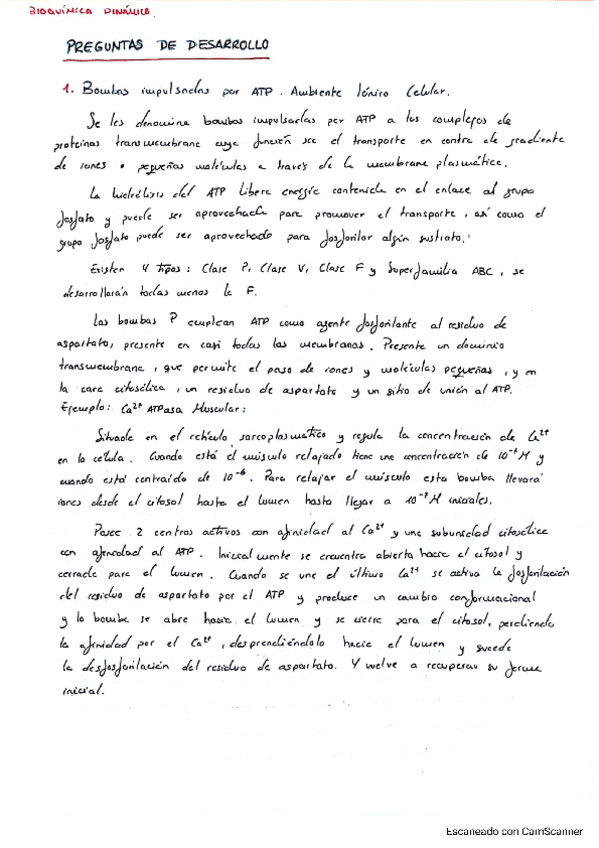 BIOQUÍMICA DINÁMICA
PREGUNTAS DE DESARROLLO
1. Bombas impulsadas por ATP. Ambiente Iónico Celular.
Se les denomina bombas impulsadas por ATP a los complejos de
proteínas transmembrana cuya función sea el transporte en contra de gradiente
de iones o pequeñas moléculas a través de la membrana plasmática.
La hidrólisis del ATP libera energía contenida en el enlace al grupo
fosfato y puede ser aprovechada para promover el transporte, así como el
grupo fosfato puede ser aprovechado para fosforilar algún sustrato.
Existen 4 tipos: Clase P, Clase V, Clase F y Superfamilia ABC, se
desarrollarán todas menos la F.
Las bombas P emplean ATP como agente fosforilante al residuo de
aspartato, presente en casi todas las membranas. Presenta un dominio
transmembrana, que permite el paso de iones y moléculas pequeñas, y en
la cara citosólica, un residuo de aspartato y un sitio de unión al ATP.
Ejemplo: Ca²⁺ ATPasa Muscular:
Situada en el retículo sarcoplasmático y regula la concentración de Ca²⁺
en la célula. Cuando está el músculo relajado tiene una concentración de 10⁻⁷ M y
cuando está contraído de 10⁻⁶. Para relajar el músculo esta bomba llevará
iones desde el citosol hasta el lumen hasta llegar a 10⁻⁷ M iniciales.
Posee 2 centros activos con afinidad al Ca²⁺ y una subunidad citosólica
con afinidad al ATP. Inicialmente se encuentra abierta hacia el citosol y
cerrada para el lumen. Cuando se une el último Ca²⁺ se activa la fosforilación
del residuo de aspartato por el ATP y produce un cambio conformacional
y la bomba se abre hacia el lumen y se cierra para el citosol, perdiendo
la afinidad por el Ca²⁺, desprendiéndolo hacia el lumen y sucede
la desfosforilación del residuo de aspartato. Y vuelve a recuperar su forma
inicial.
Escaneado con CamScanner